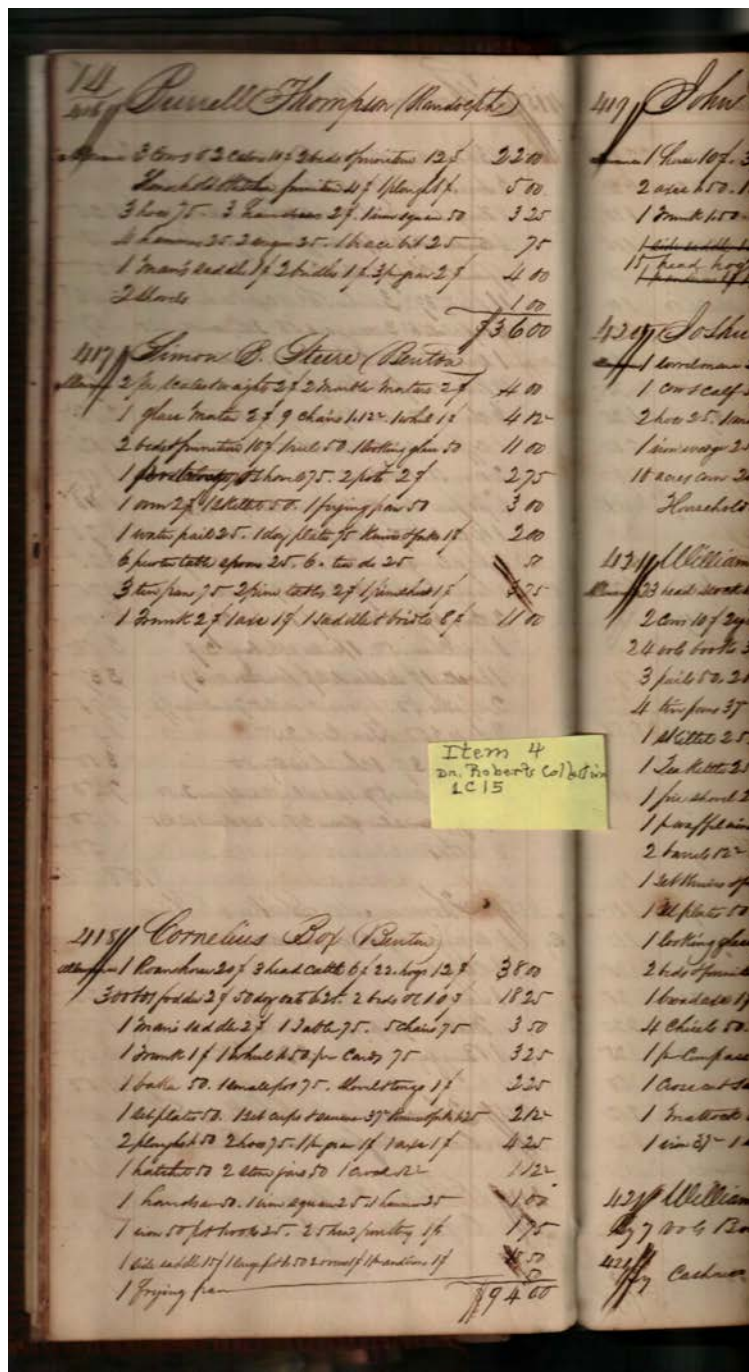 14
416 Burrell Thompson (Randolph)
3 Cows & 2 Calves 10$ 2 beds & furniture 12$ 22 00
Household & kitchen furniture 4$ 1 plough 1$ 5 00
3 hoes 75. 3 handsaws 2$. 1 iron square 50 3 25
4 hammers 25. 2 augers 25. 1 brace bit 25 75
1 man's saddle 1$ 2 bridles 1$ 3 pr gear 2$ 4 00
2 shovels 1 00
$36 00
417 Simon B. Steere (Benton)
2 pr scales & weights 2$ 2 marble mortars 2$ 4 00
1 glass mortar 2$ 9 chairs 1.12 1 wheel 1$ 4 12
2 beds & furniture 10$ 1 reel 50. 1 looking glass 50 11 00
1 75. 2 pots 2$ 2 75
1 oven 2$ 1 skillet 50. 1 frying pan 50 3 00
1 water pail 25. 1 doz plates 75 Knives & forks 1$ 2 00
6 pewter table spoons 25. 6 tea do 25 50
3 tin pans 75 2 pine tables 2$ 1 1$ 3 75
1 Trunk 2$ 1 axe 1$ 1 saddle & bridle 8$ 11 00
Item 4
Dr. Roberts Collection
LC15
418 Cornelius Box (Benton)
1 Roan horse 20$ 3 head cattle 6$ 22 hogs 12$ 38 00
300 lbs fodder 2$ 50 doz oats 6.25. 2 beds &c 10$ 18 25
1 man's saddle 2$ 1 Table 75. 5 chairs 75 3 50
1 Trunk 1$ 1 wheel 1.50 pr Cards 75 3 25
1 50. 1 small pot 75. shovel & tongs 1$ 2 25
1 set plates 50. 1 set cups & saucers 37 Knives & forks 1.25 2 12
2 ploughs 1.50 2 hoes 75. 1 pr gear 1$ 1 axe 1$ 4 25
1 hatchet 50 2 stone jars 50 1 crock 12 1 12
1 handsaw 50. 1 iron square 25. 1 hammer 25 1 00
1 iron 50 pot hooks 25. 25 head poultry 1$ 1 75
1 side saddle 15$ 1 large pot 1.50 1$ 1 pr andirons 1$ 50
1 frying pan
$94 00
419 John
1 horse 10$. 3
2 axes 1.50. 1
1 Trunk 1.50
1 side saddle
15 head hogs
420 Joshu
1 sorrel mare
1 cow & calf
2 hoes 25.
1 iron wedge 25
10 acres corn 20
Household
421 William
23 head stock
2 Cows 10$
24 vols books
3 pails 50.
4 tin pans 37
1 skillet 25
1 Tea Kettle 25
1 fire shovel 2
1 pr waffle irons
2 barrels 12
1 set Knives & f
1 set plates 50
1 looking glass
2 beds & furni
1 broad axe 1$
4 Chisels 50.
1 pr Compass
1 Cross cut sa
1 mattock
1 iron 37 1
William
7 vols Bo
Cashmer